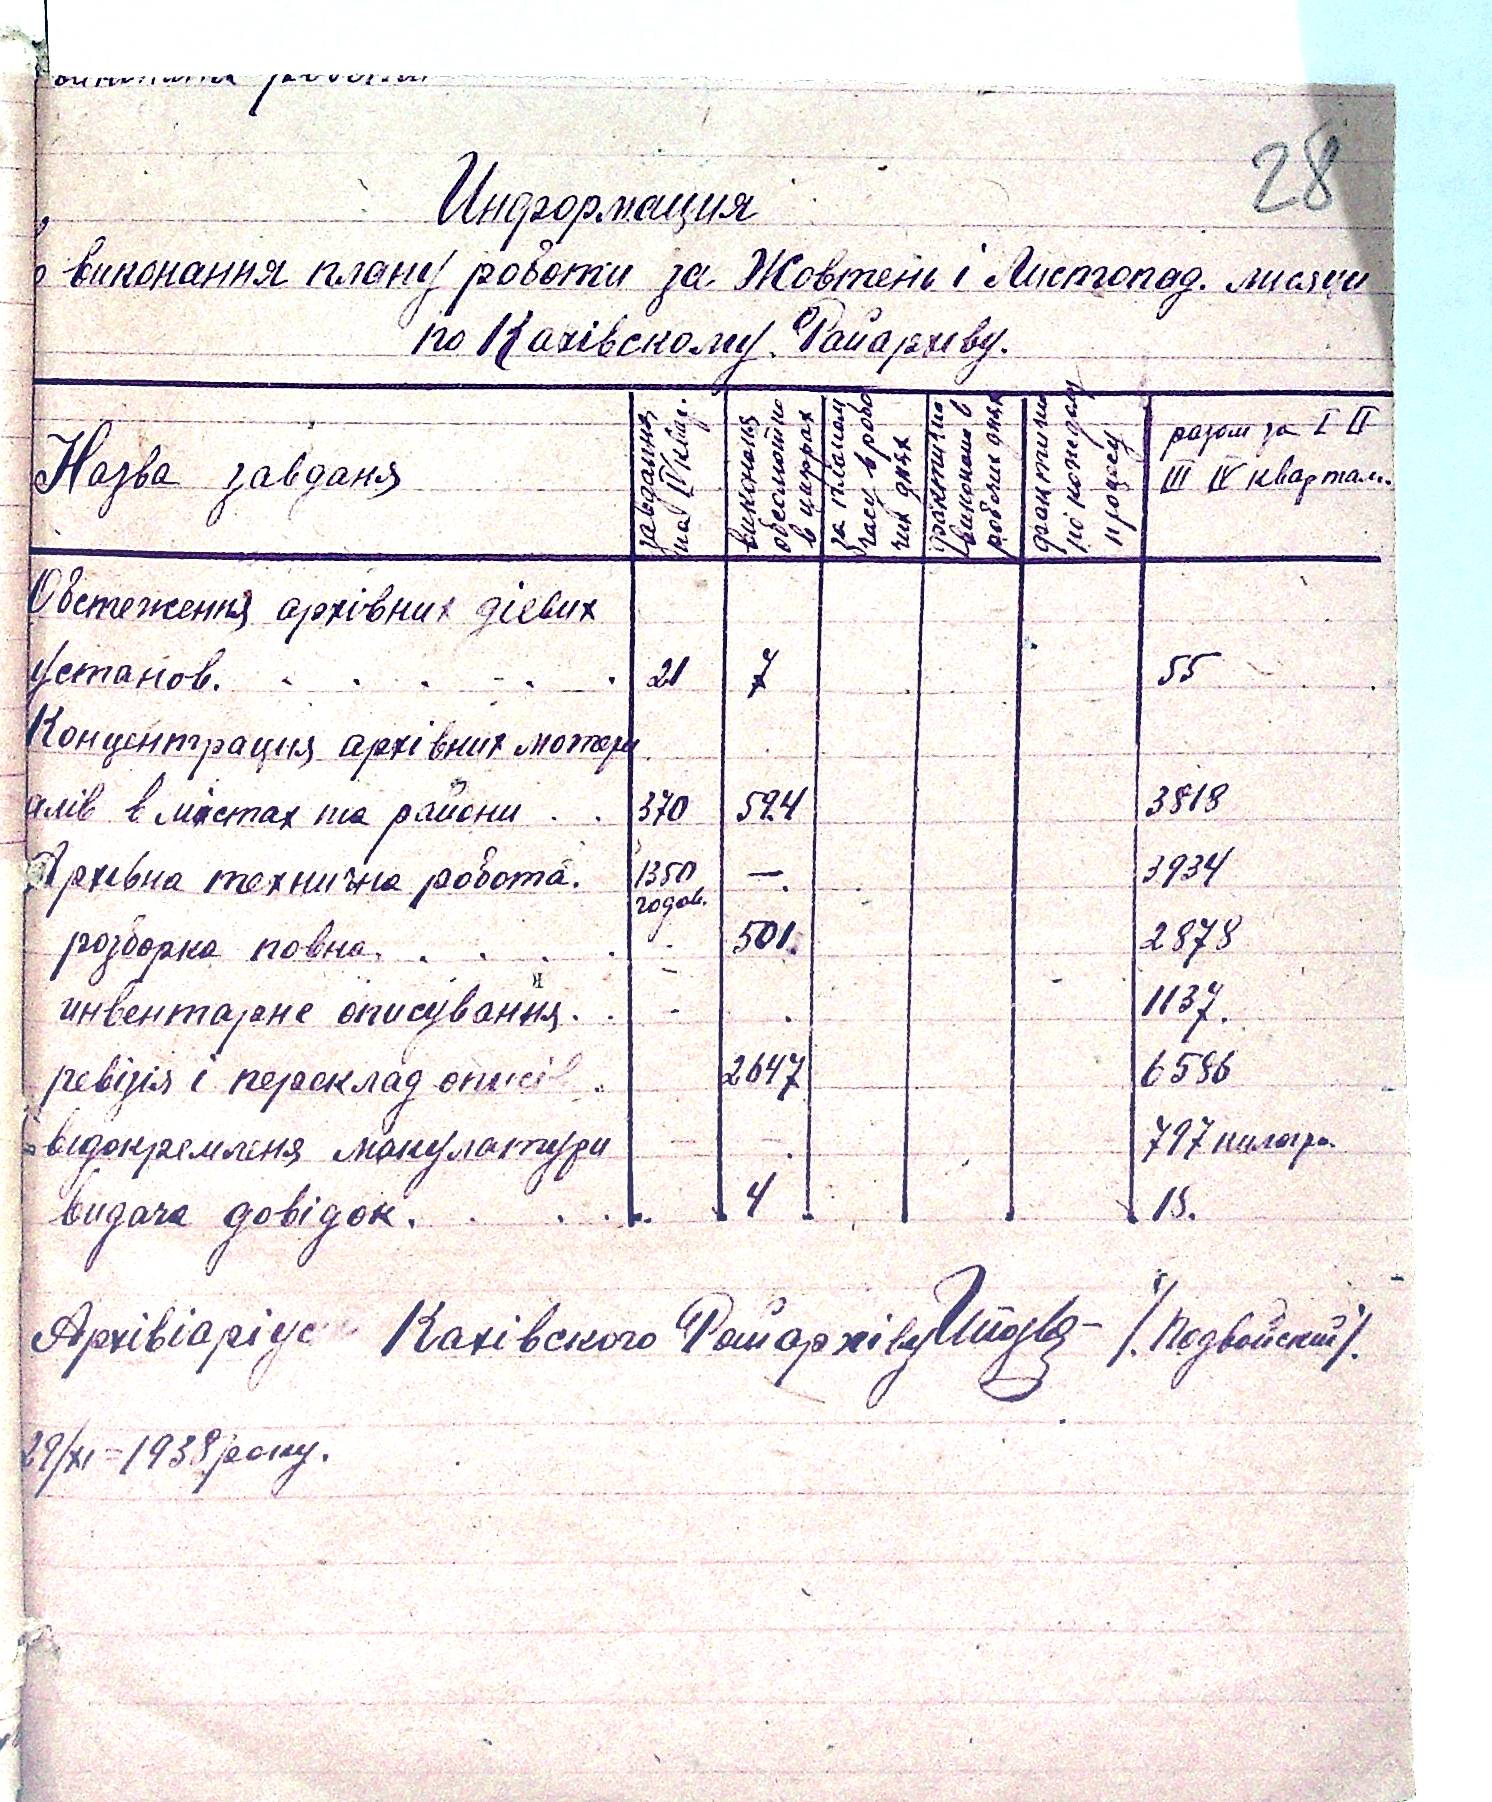 28
Информация
виконання плану роботи за Жовтень і Листопад. мисяци
по Кахівскому Райархеву.
Назва завданя
завдання на IV квар.
викононо обсолютно в цифрах
за планом часу в робо чих днях
фактично виконано в робочих днях
фрактично по кождому процесу
разом за I II III IV квартали.
Обстеження архівних діевих
установ. 21 7 55
Концентрация архівних матери
алів в містах та райони . . 370 594 3818
Архивна технична робота. 1350 годов. — 3934
розборка повна. 501. 2878
инвентарне описування. . 1137.
ревізія і пероклад описів . 2647 6586
відокремленя макулатури 797 килогр.
видача довідок. 4 15.
Архівіаріус Кахівского Райархіву /. Подвойский/.
29/XI = 1938 року.